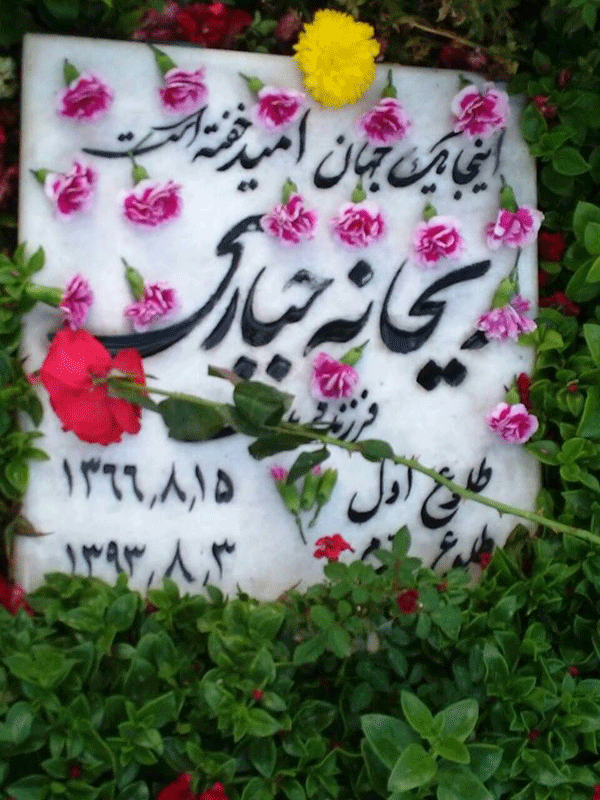 اینجا یک جهان امید خفته است
ریحانه جباری
فرزند
طلوع اول ۱۳۶۶٫۸٫۱۵
طلوع ۱۳۹۳٫۸٫۳